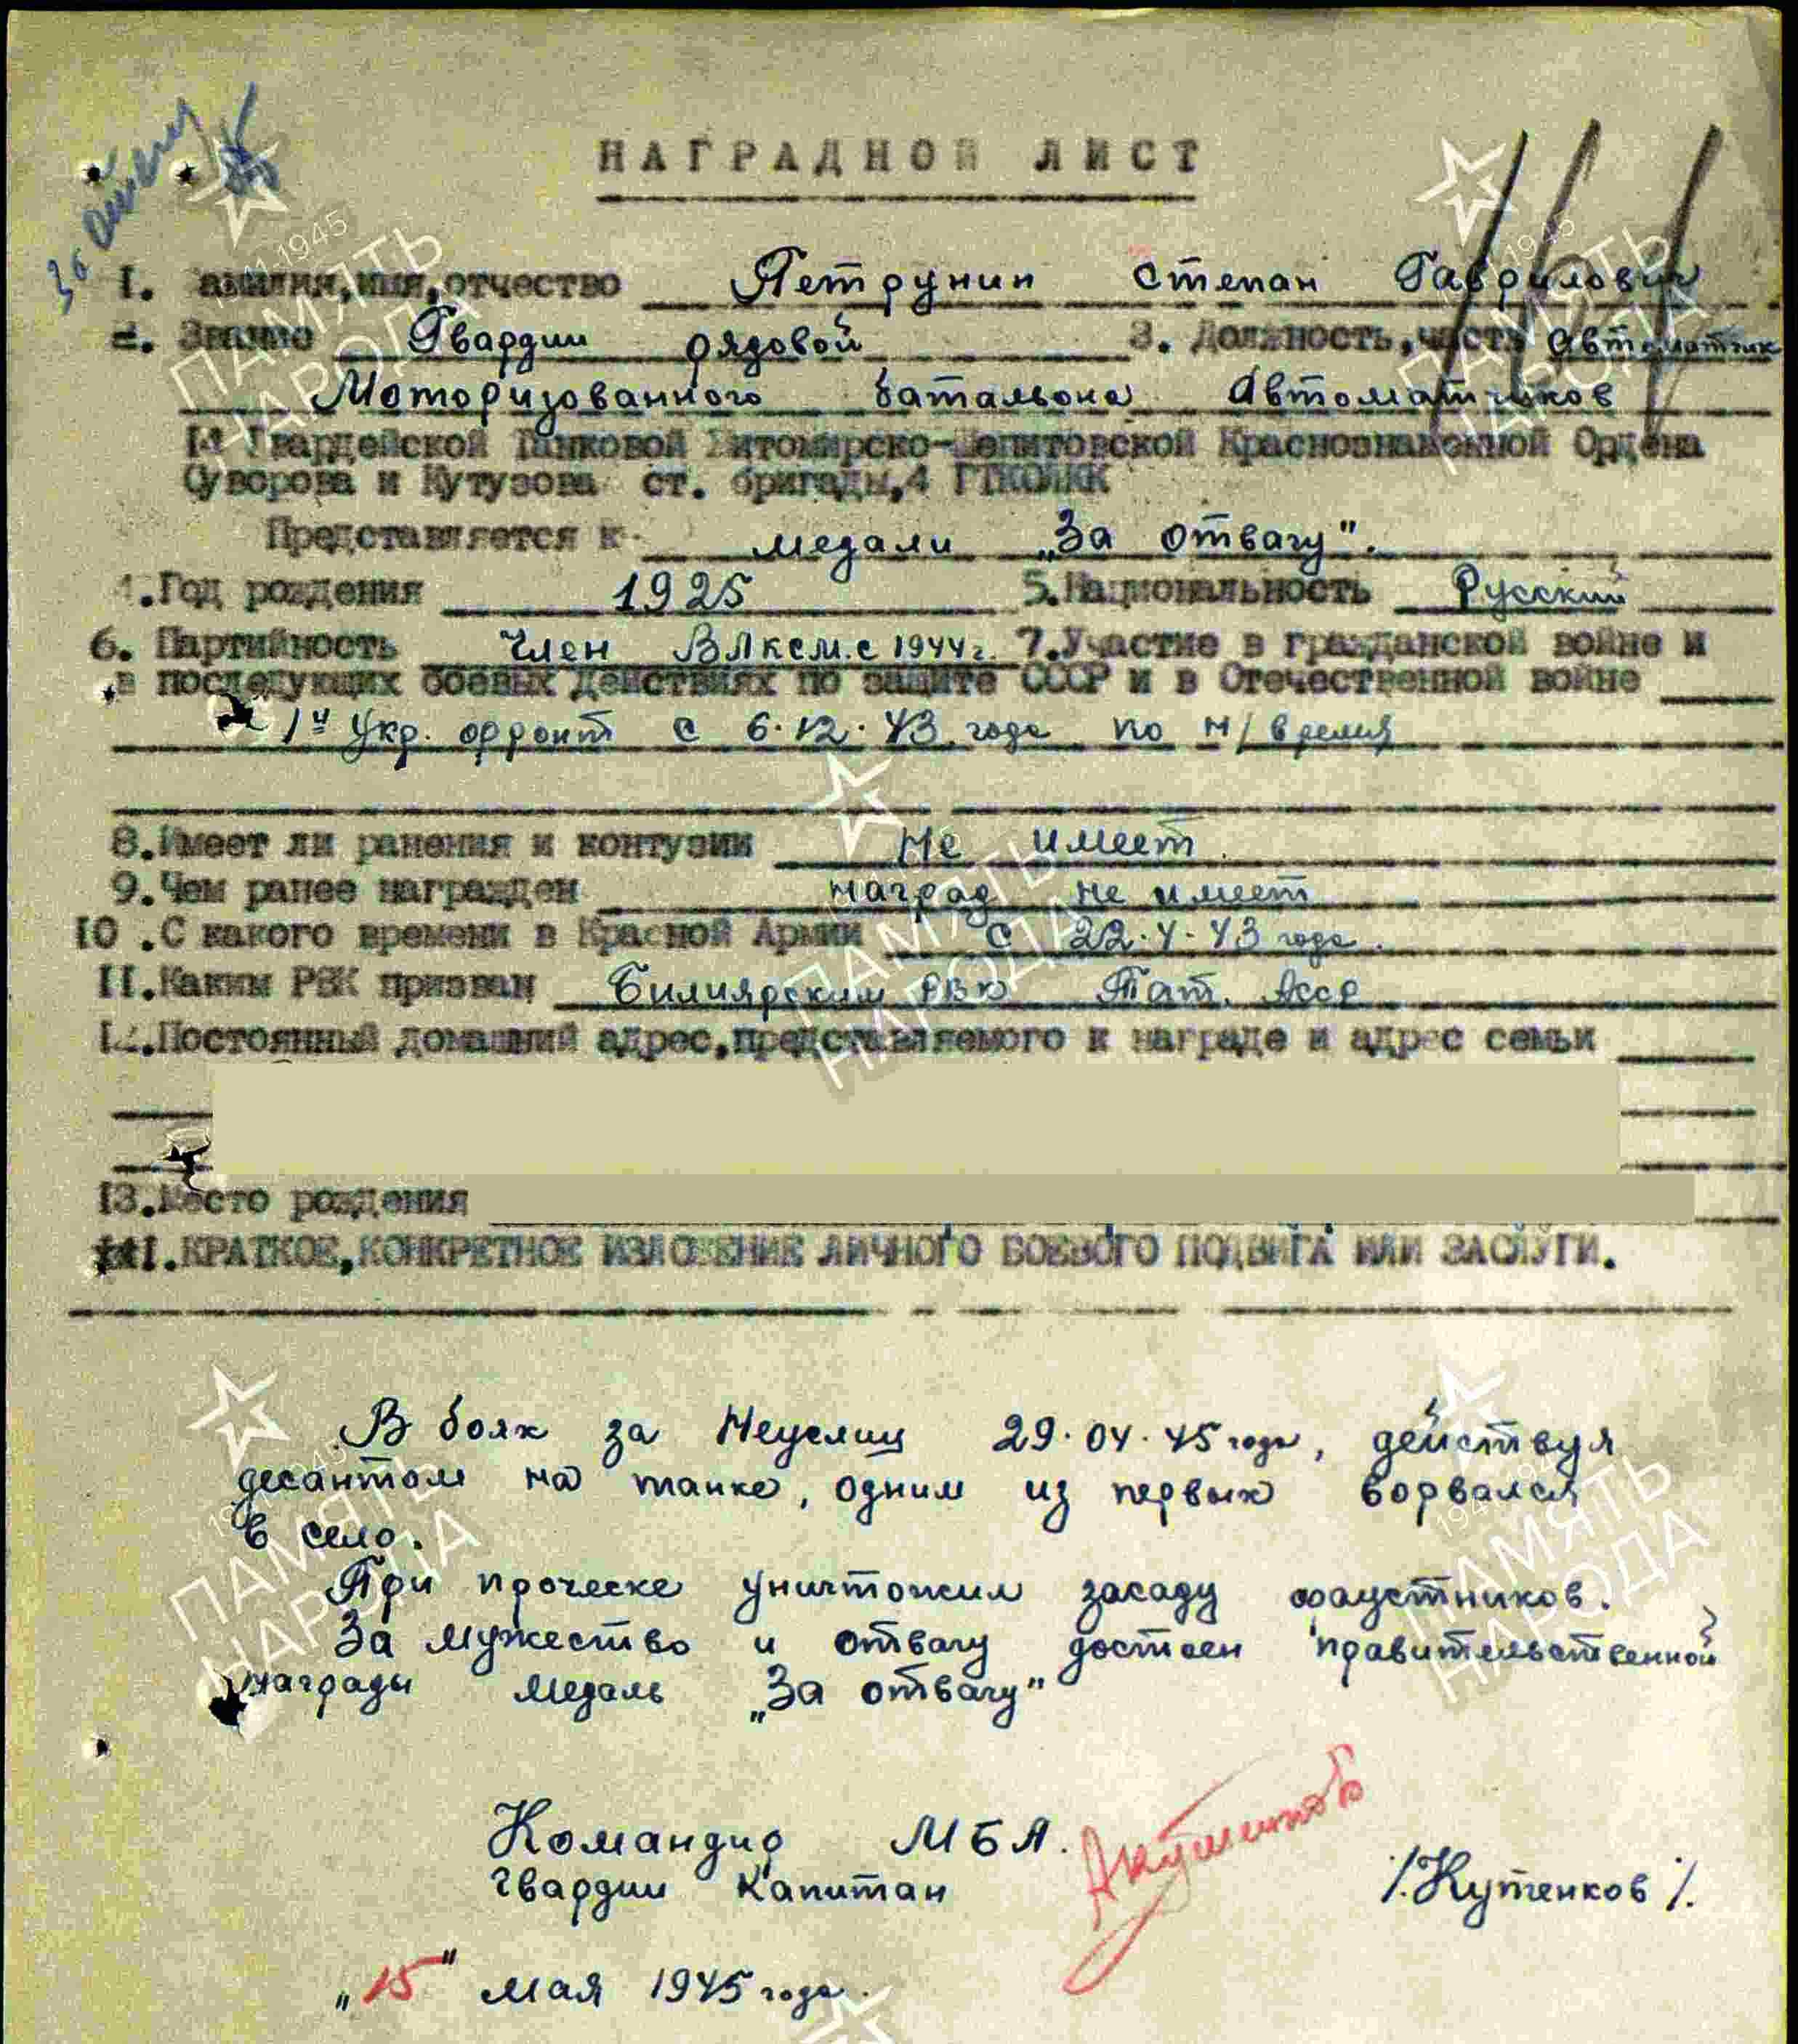 НАГРАДНОЙ ЛИСТ
144
I. Фамилия,имя,отчество Петрунин Степан Гаврилович
2. Звание Гвардии рядовой 3. Должность,часть Автоматчик
Моторизованного батальона Автоматчиков
14 Гвардейской Танковой Житомирско-Шепитовской Краснознаменной Ордена
Суворова и Кутузова ст. бригады,4 ГТКОЛКК
Представляется к медали „За отвагу".
4.Год рождения 1925 5.Национальность Русский
6. Партийность Член ВЛКСМ.с 1944г. 7.Участие в гражданской войне и
в последующих боевых действиях по защите СССР и в Отечественной войне
1й Укр. фронт с 6.12.43 года по н/время
8.Имеет ли ранения и контузии Не имеет.
9.Чем ранее награжден наград не имеет
10 .С какого времени в Красной Армии с 22.4.43 года.
II.Каким РВК призван Билярским РВК Тат. Асср
12.Постоянный домашний адрес,представляемого к награде и адрес семьи
13.Место рождения
I.КРАТКОЕ,КОНКРЕТНОЕ ИЗЛОЖЕНИЕ ЛИЧНОГО БОЕВОГО ПОДВИГА ИЛИ ЗАСЛУГИ.
В боях за 29.04.45 года, действуя
десантом на танке, одним из первых ворвался
в село.
При проческе уничтожил засаду фаустников.
За мужество и отвагу достоен правительственной
награды медаль „За отвагу"
Командир МБА.
гвардии Капитан /.Кутенков/.
„15" мая 1945 года.
ПАМЯТЬ
НАРОДА
ПАМЯТЬ
НАРОДА
ПАМЯТЬ
НАРОДА
ПАМЯТЬ
НАРОДА
ПАМЯТЬ
НАРОДА